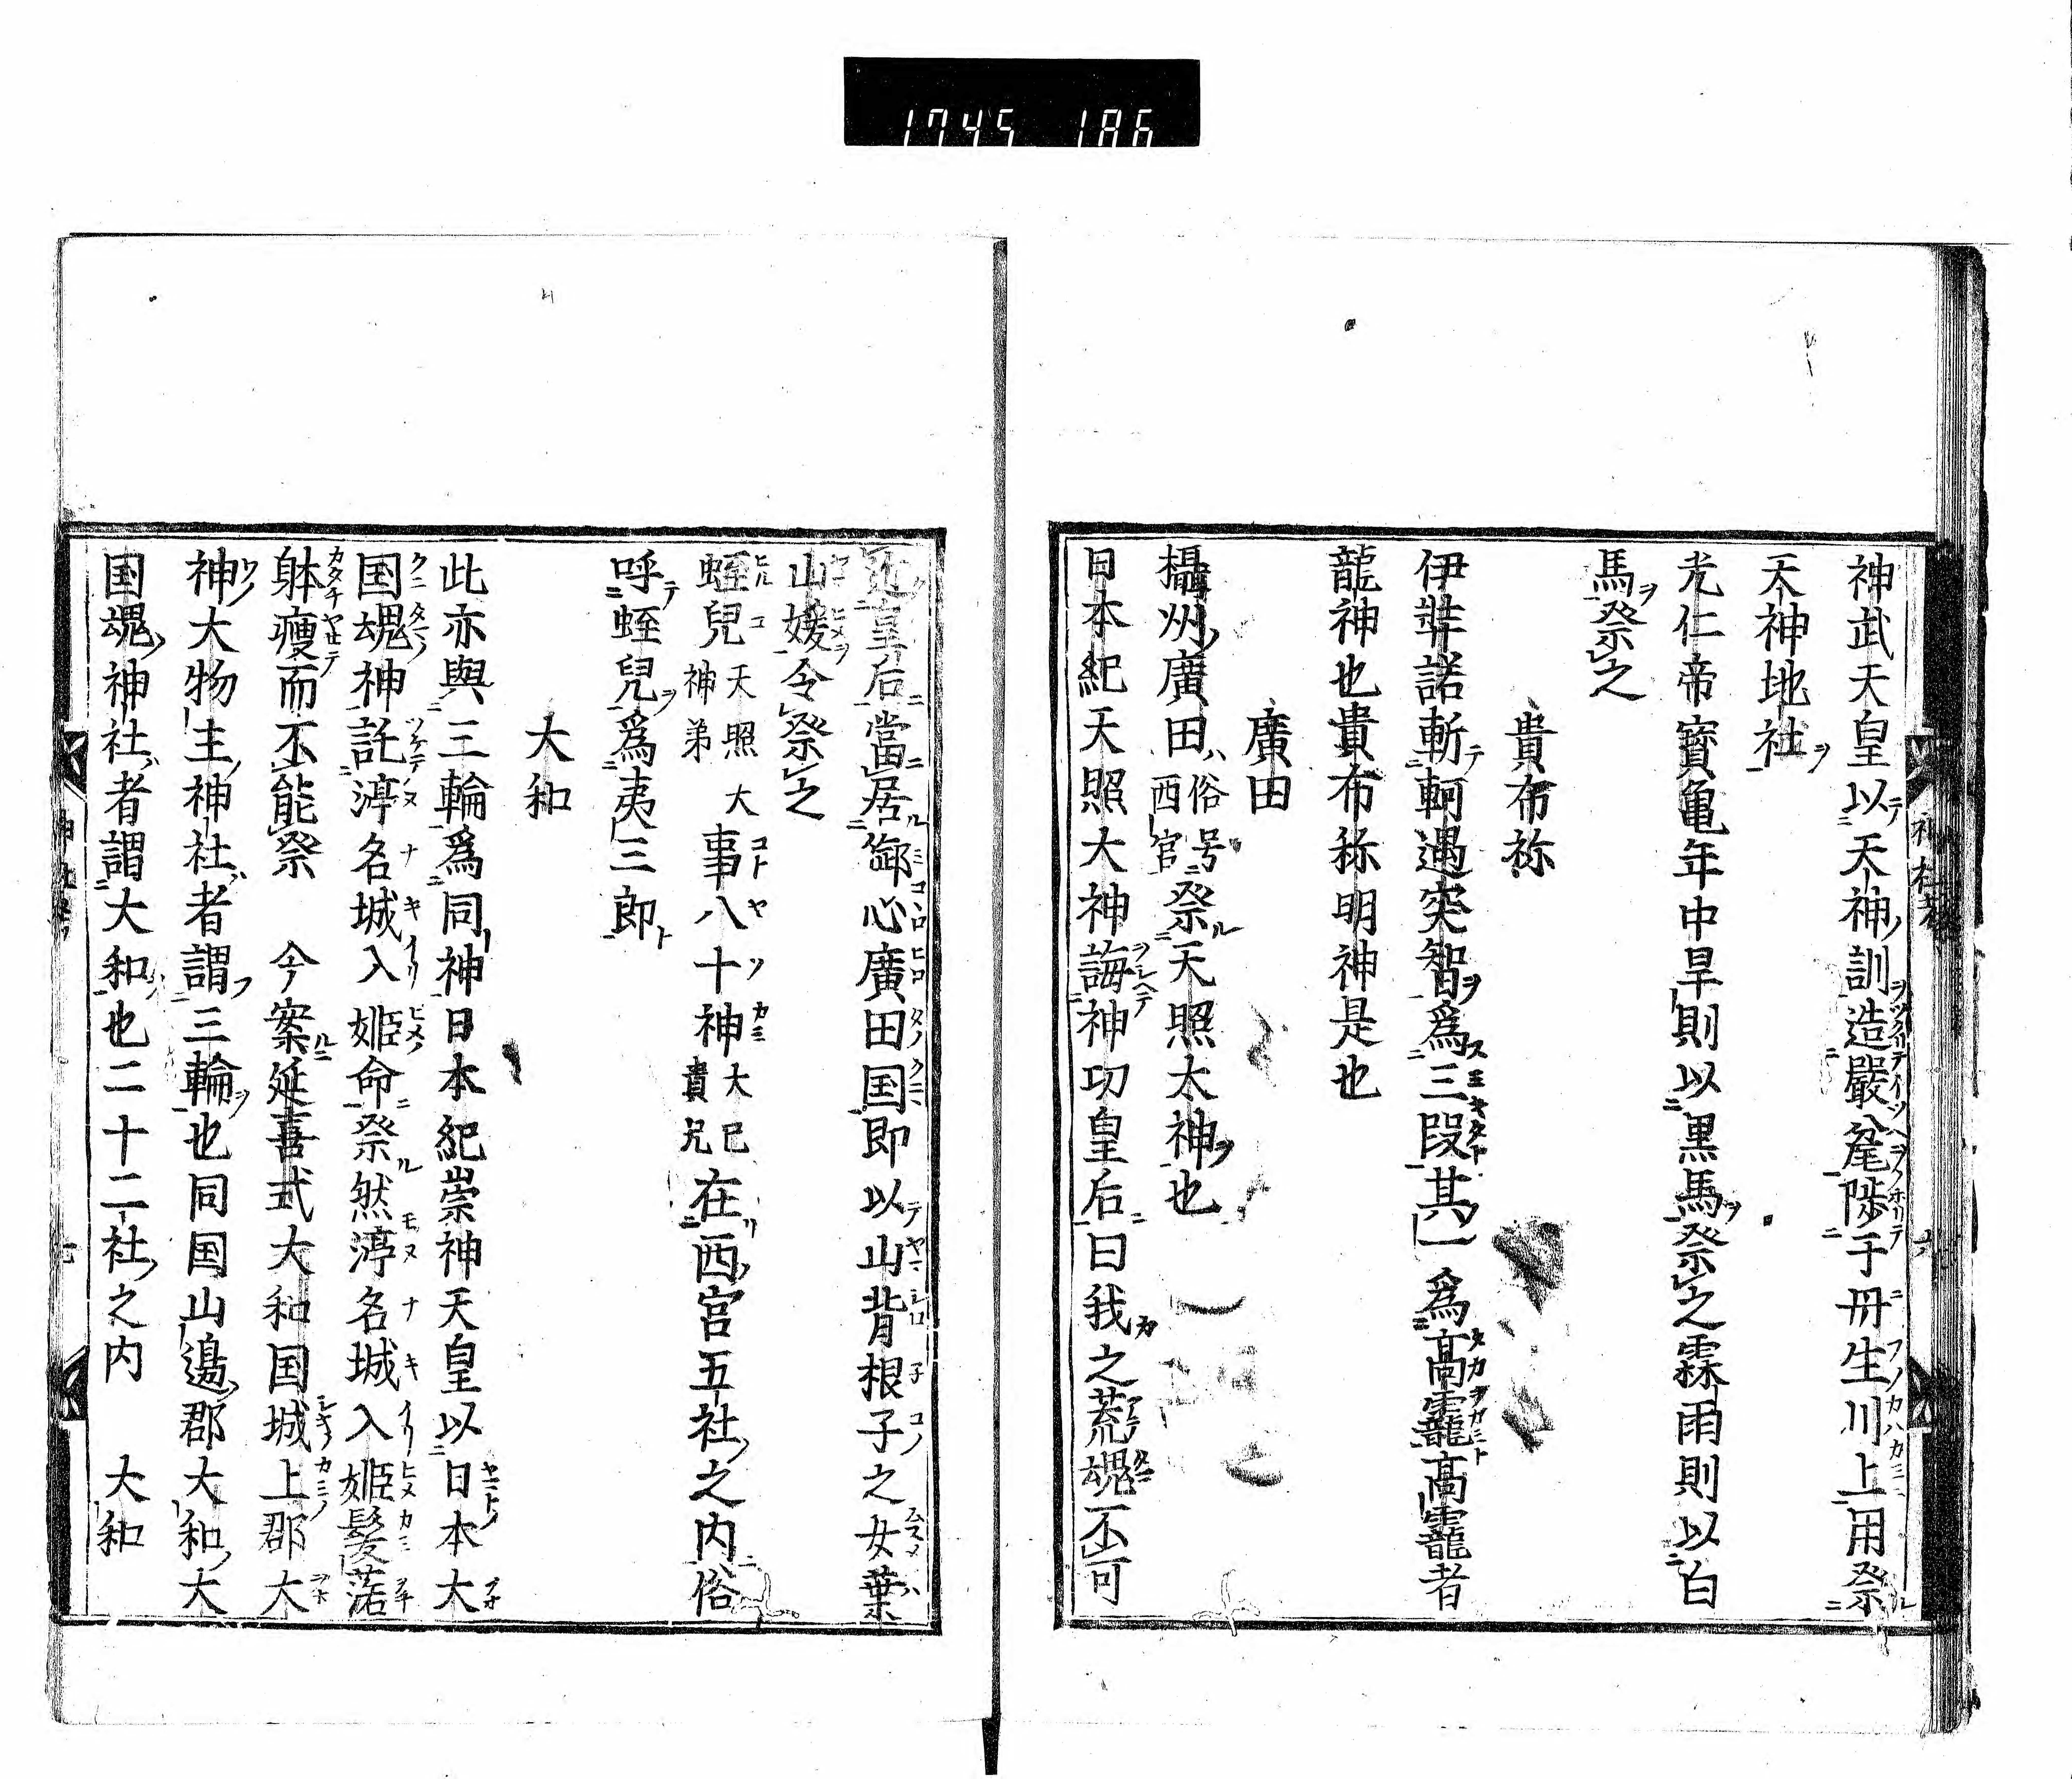 1745 186
神武天皇以天神訓造嚴瓮陟于丹生川上用祭
天神地社
光仁帝寳亀年中旱則以黒馬祭之霖雨則以白
馬祭之
貴布祢
伊弉諾斬軻遇突智爲三段其一爲髙龗髙龗者
龍神也貴布祢明神是也
廣田
攝州廣田俗号西宮祭天照太神也
日本紀天照大神誨神功皇后曰我之荒魂不可
近皇后當居御心廣田国即以山背根子之女葉
山媛令祭之
蛭兒天照大神弟事八十神大己貴兄在西宮五社之内俗
呼蛭兒爲夷三郎
大和
此亦與三輪爲同神日本紀崇神天皇以日本大
国魂神託渟名城入姫命祭然渟名城入姫髪落
躰痩而不能祭　今案延喜式大和国城上郡大
神大物主神社者謂三輪也同国山邊郡大和大
国魂神社者謂大和也二十二社之内　大和